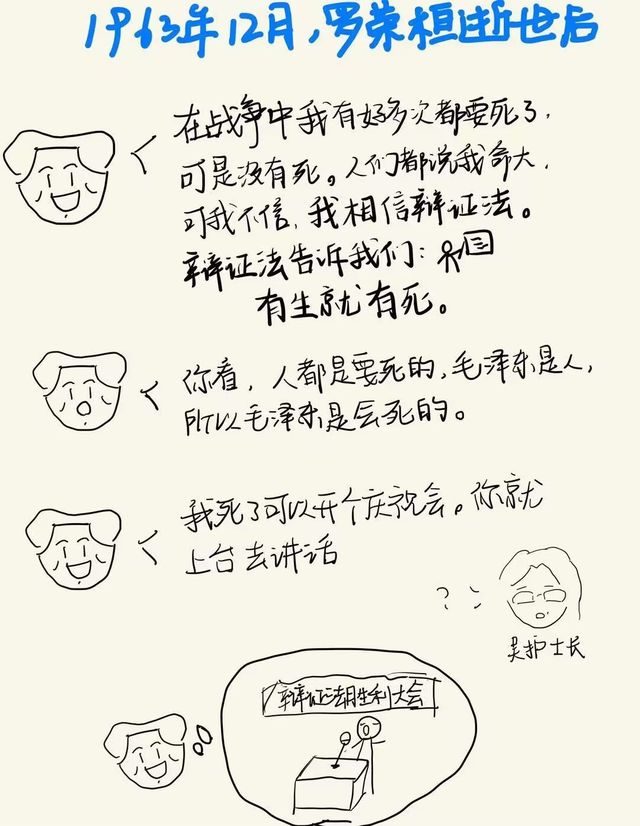 1963年12月,罗荣桓逝世后
在战争中我有好多次都要死了,
可是没有死。人们都说我命大,
可我不信,我相信辩证法。
辩证法告诉我们:
有生就有死。
你看,人都是要死的,毛泽东是人,
所以毛泽东是会死的。
我死了可以开个庆祝会。你就
上台去讲话
??
吴护士长
辩证法胜利大会